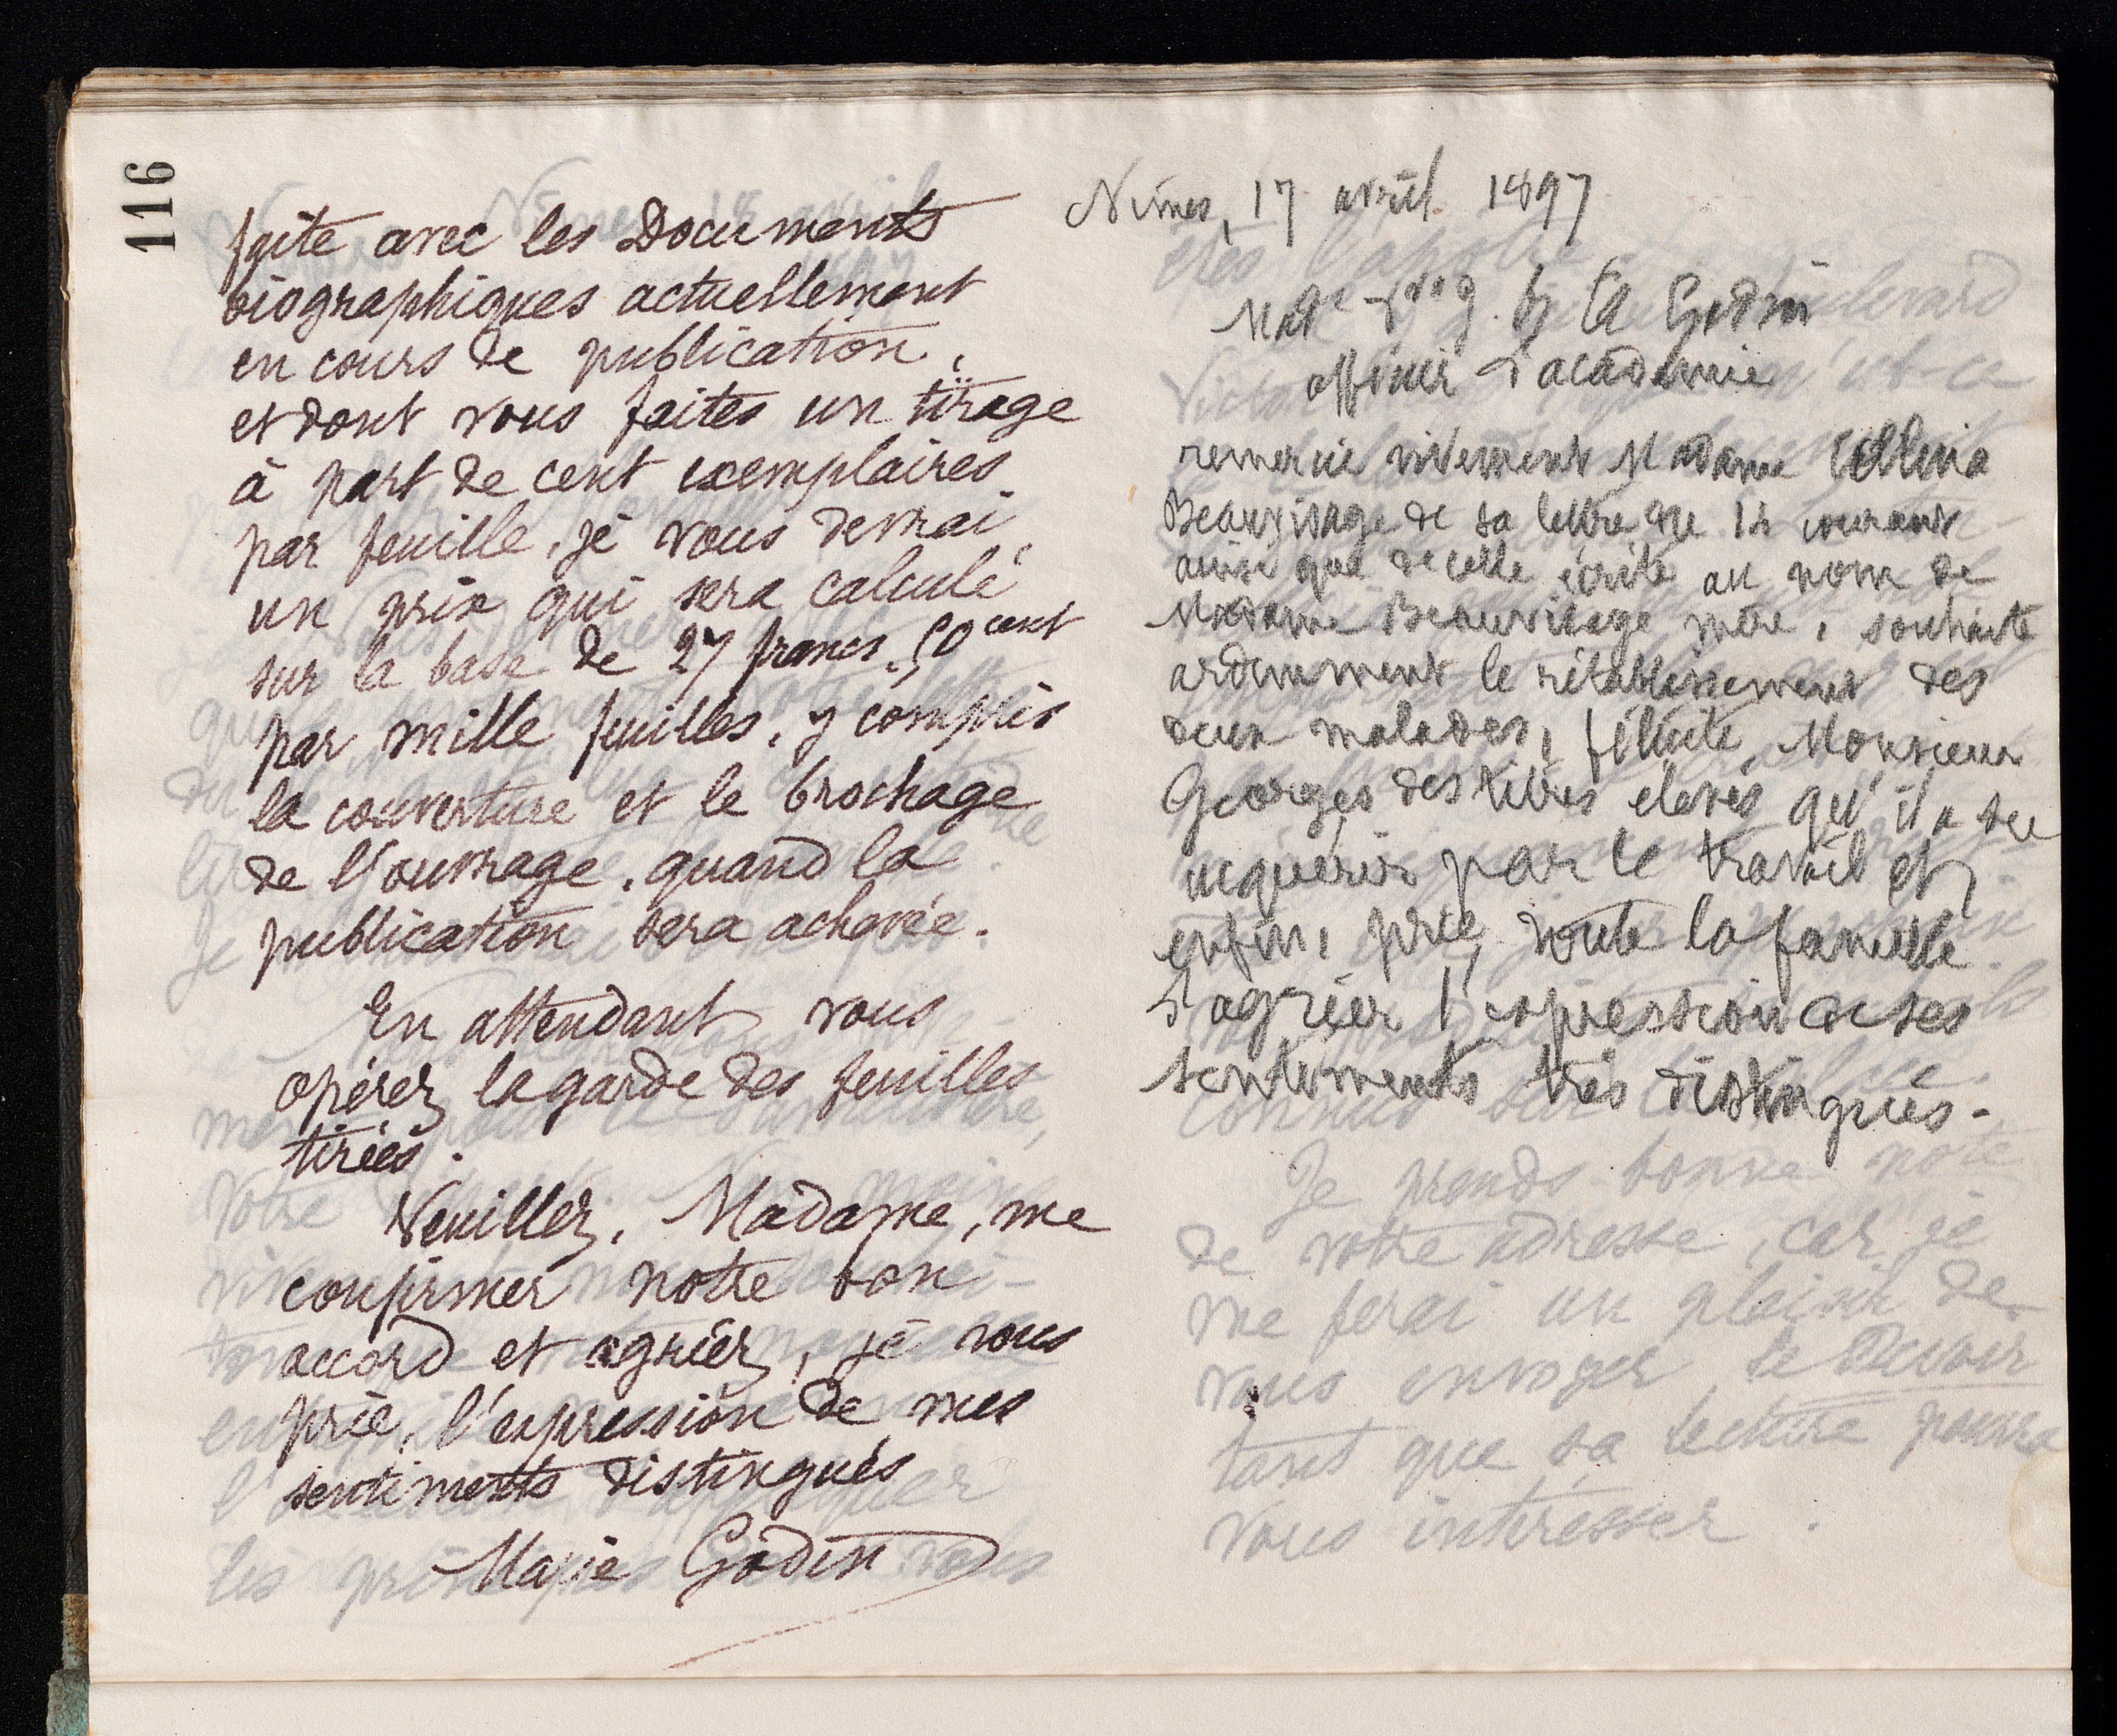 116
faite avec les Documents
biographiques actuellement
en cours de publication,
et dont vous faites un tirage
à part de cent exemplaires
par feuille, je vous devrai,
un prix qui sera calculé
sur la base de 27 francs 50 cent
par mille feuilles, y compris
la couverture et le brochage
de l'ouvrage, quand la
publication sera achevée.
En attendant vous
opérez la garde des feuilles
tirées.
Veuillez, Madame, me
confirmer notre bon
accord et agréer, je vous
prie, l'expression de mes
sentiments distingués
Marie Godin
Nîmes, 17 avril 1897
Mad Godin
officier d'académie
remercie vivement Madame
Beauvisage de sa lettre du courant
ainsi que de celle écrite au nom de
Madame Beauvisage mère, souhaite
ardemment le rétablissement des
deux malades, félicite Monsieur
Georges des titres élevés qu'il a su
acquérir par le travail et,
enfin, prie toute la famille
d'agréer l'expression de ses
sentiments très distingués.
Je prends bonne note
de votre adresse, car je
me ferai un plaisir de
vous envoyer le Devoir
tant que sa lecture pourra
vous intéresser.